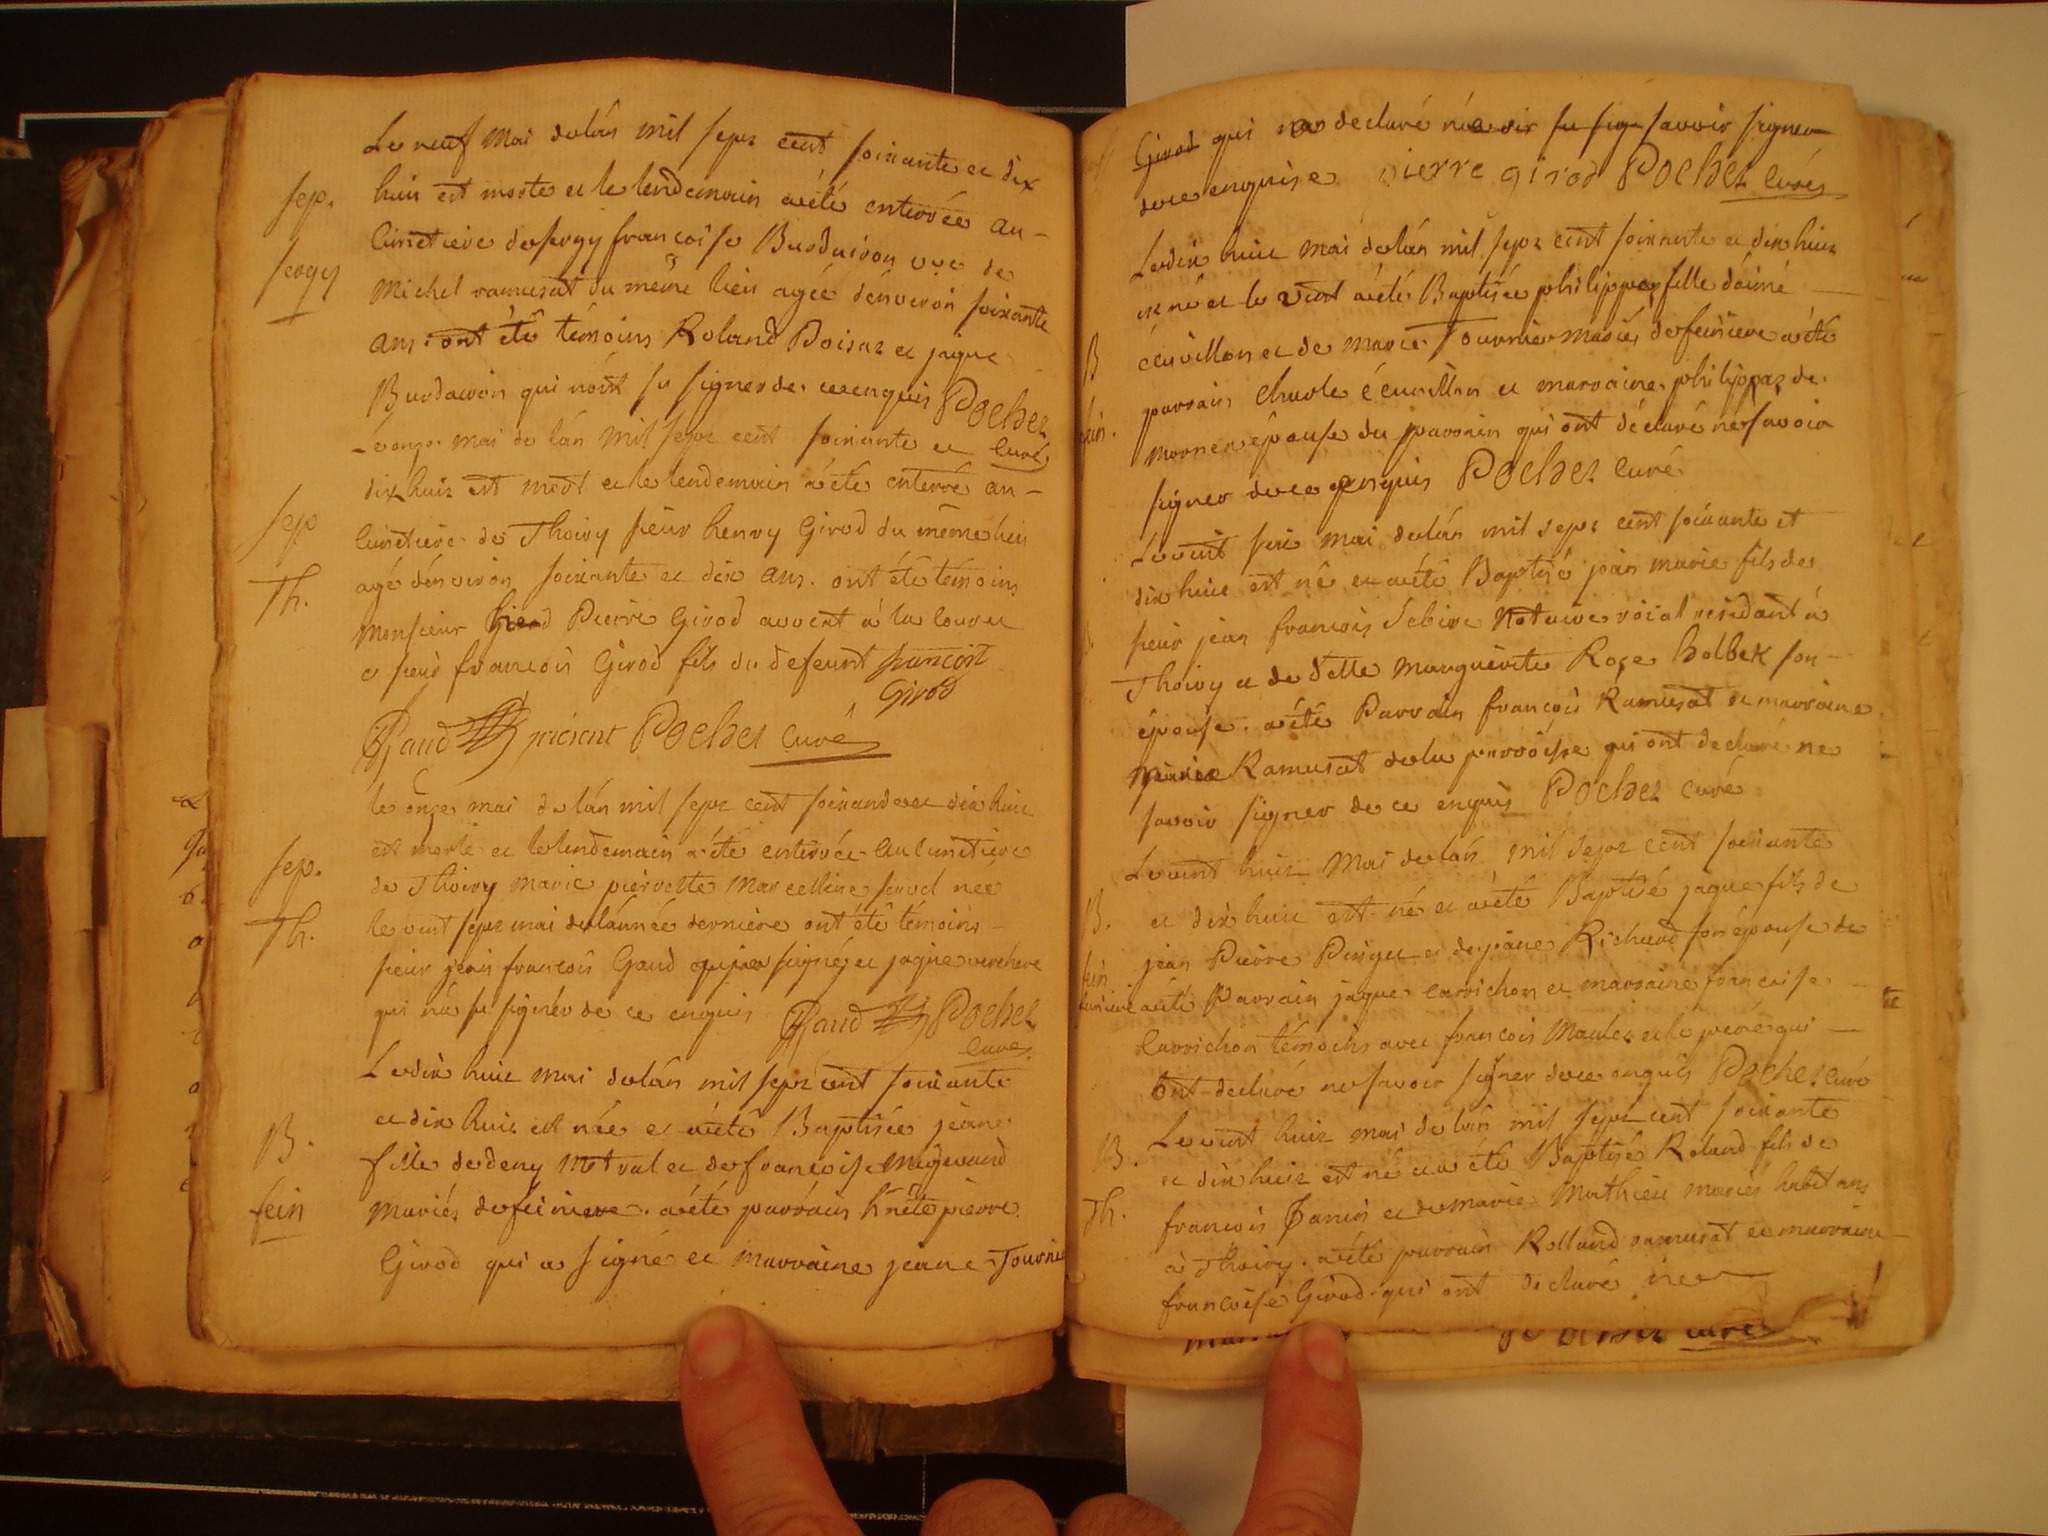 Le neuf mai de lán mil sept cent soixante et dix
sep.
huit est morte et le lendemain a été enterrée au -
Cimetiere de sergy françoise Burdairon vve de
sergy
Michel ramusat du même lieu agée dénviron soixante
ans. ont été témoins Roland Poisat et jaque
Burdairon qui nónt su signer de ce enquis Pochet
curé
Le onze mai de lán mil sept cent soixante et
dix huit est mort et le lendemain a été enterré au -
sep
Cimetiere de Thoiry sieur henry Girod du même lieu
Th.
agé dénviron soixante et dix ans. ont été témoins
monsieur Pierre Girod avocat à la cour et
et sieur françois Girod fils du defeunt françois
Girod
Gaud présent Pochet curé
le onze mai de lán mil sept cent soixande et dix huit
est morte et le lendemain a été enterrée au cimetiere
sep.
de Thoiry marie pierrette marcelline née
Th.
le vint sept mai de lánnée derniere ont été témoins -
sieur jean françois Gaud qui a signé et jaque verchere
qui ná su signér de ce enquis Gaud Pochet
curé
Le dix huit mai de lán mil sept cent soixante
et dix huit est née et a été Baptisée jeane
B.
fille de deny et de françoise megevand
fein
mariés de feiniere. a été parrain hnête pierre
Girod qui a signé et marraine jeane Tournie
Girod qui a declaré savoir signer
de ce enquise pierre girod Pochet curé
Le dix huit mai de lán mil sept cent soixante et dix huit
est né et le vint a été Baptisée philippaz fille déimé
B
écuvillon et de marie Tournier mariés de feiniere a été
parrain Charle écuvillon et marraine philippaz de
fein.
mornex épouse du parrain qui ont déclaré ne savoir
signer de ce enquis Pochet curé
Le vint six mai de lán mil sept cent soixante et
dix huit est né et a été Baptisé jean marie fils de
sieur jean françois Notaire roial residant á
Thoiry et de delle marguerite Roze holbek son -
épouse. a été Parrain françois Ramusat et marraine
marie Ramusat de la parroisse qui ont declaré ne
savoir signer de ce enquis Pochet curé
Le vint huit Mai de lán mil sept cent soixante
B.
et dix huit est né et a été Baptisé jaque fils de
jean Pierre Pinget et de jeane Richard son épouse de
fein
feiniere a été Parrain jaque carrichon et marraine françoise -
Carrichon témoins avec françois et le pere qui -
ont declaré ne savoir signer de ce enquis Pochet curé
Le vint huit mai de lán mil sept cent soixante
B.
et dix huit est né et a été Baptisé Roland fils de
françois Janin et de marie mathieu mariés habitans
Th.
à Thoiry. a été parrain Rolland ramusat et marraine
françoise Girod qui ont declaré
Pochet curé